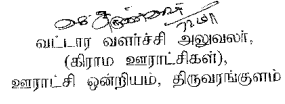 வட்டார வளர்ச்சி அலுவலர்,
(கிராம ஊராட்சிகள்),
ஊராட்சி ஒன்றியம், திருவரங்குளம்